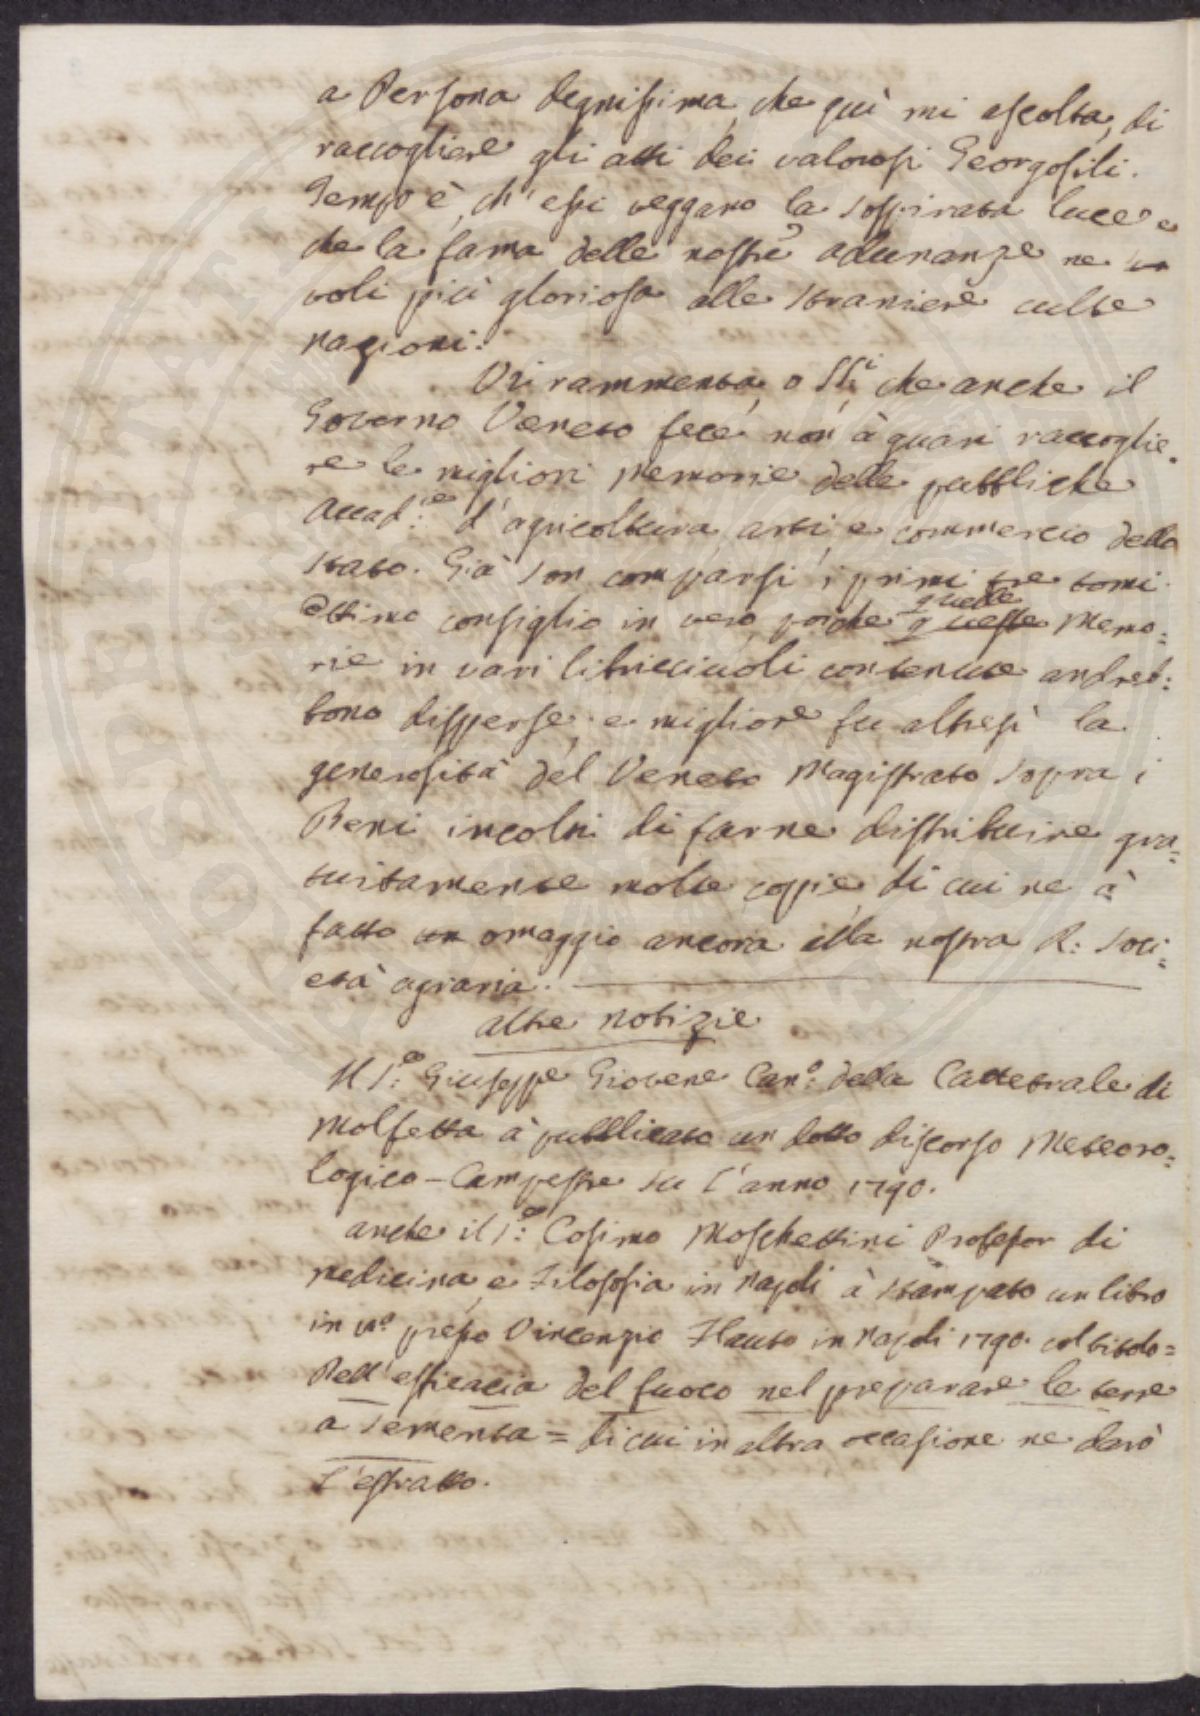 a Persona degnissima, che quì mi ascolta, di
raccogliere gli atti dei valorosi Georgofili.
Tempo è, ch'essi veggano la sospirata luce e
che la fama delle nostre adunanze ne
voli più gloriosa alle straniere culte
nazioni.
Vi rammenta, o SS.i che anche il
Governo Veneto fece, non à guari raccoglie=
re le migliori Memorie delle pubbliche
Accad:ie d'agricoltura, arti, e commercio dello
stato. Già son comparsi i primi tre tomi.
Ottimo consiglio in vero, poiche quelle queste Memo=
rie in vari libricciuoli contenute andreb=
bono disperse; e migliore fu altresì la
generosità del Veneto Magistrato sopra i
Beni incolti di farne distribuire gra=
tuitamente molte copie, di cui ne à
fatto un omaggio ancora alla nostra R: Soci=
età agraria.
altre notizie
Il S:e Giuseppe Giovene Can:o della Cattetrale di
Molfetta à pubblicato un dotto discorso Meteoro=
logico-Campestre su l'anno 1790.
anche il S:e Cosimo Moschettini Professor di
medicina, e Filosofia in Napoli à stampato un libro
in 8.o presso Vincenzio Flauto in Napoli 1790. col titolo=
Dell'efficacia del fuoco nel preparare le terre
a sementa = di cui in altra occasione ne darò
l'estratto.